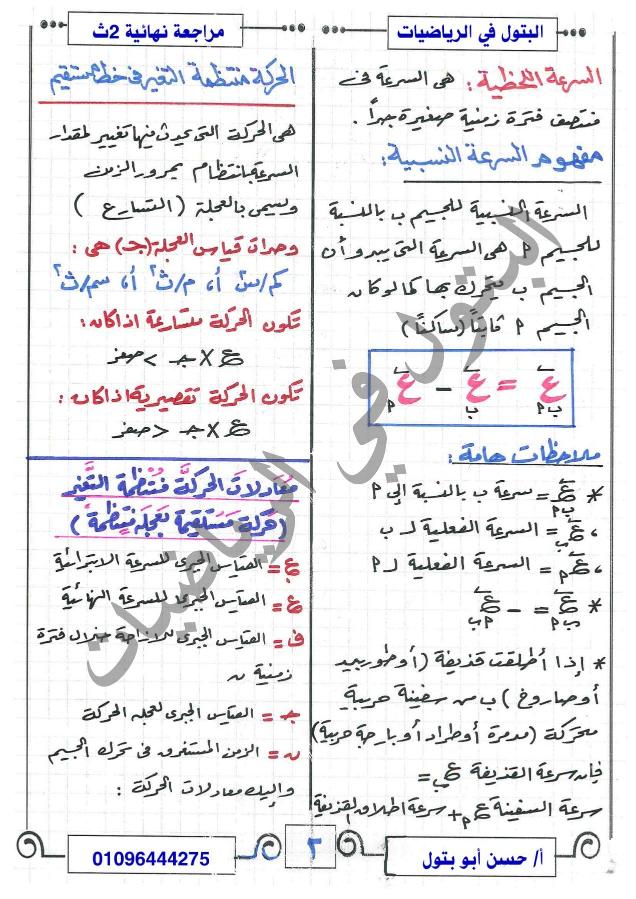 البتول في الرياضيات
مراجعة نهائية 2ث
السرعة اللحظية : هى السرعة فى
منتصف فترة زمنية صغيرة جداً .
مفهوم السرعة النسبية :
السرعة النسبية للجسيم ب بالنسبة
للجسيم P هى السرعة التى يبدو أن
الجسيم ب يتحرك بها كما لو كان
الجسيم P ثابتاً (ساكناً)
ع ب P = ع ب - ع P
ملاحظات هامة :
* ع ب P = سرعة ب بالنسبة إلى P
، ع ب = السرعة الفعلية لـ ب
، ع P = السرعة الفعلية لـ P
* ع ب P = - ع P ب
* إذا أطلقت قذيفة (أو طوربيد
أو صاروخ) ب من سفينة حربية
متحركة (مدمرة أو طراد أو بارجة حربية)
فإن سرعة القذيفة ع ب =
سرعة السفينة ع P + سرعة إطلاق القذيفة
الحركة منتظمة التغير فى خط مستقيم
هى الحركة التى يحدث فيها تغيير لمقدار
السرعة بانتظام بمرور الزمن
وتسمى بالعجلة (التسارع)
وحدات قياس العجلة (جـ) هى :
كم/س² أ، م/ث² أ، سم/ث²
تكون الحركة متسارعة اذا كان :
ع × جـ > صفر
تكون الحركة تقصيرية اذا كان :
ع × جـ < صفر
معادلات الحركة منتظمة التغير
(حركة مستقيمة بعجلة منتظمة)
ع. = القياس الجبرى للسرعة الابتدائية
ع = القياس الجبرى للسرعة النهائية
ف = القياس الجبرى للازاحة خلال فترة
زمنية ن
جـ = القياس الجبرى لعجلة الحركة
ن = الزمن المستغرق فى تحرك الجسيم
واليك معادلات الحركة :
أ/ حسن أبو بتول
٢
01096444275
البتول في الرياضيات